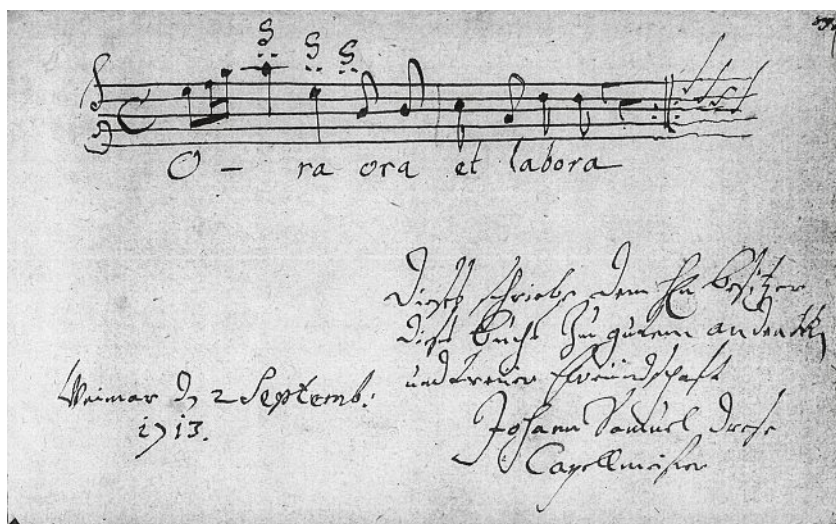 O – ra ora et labora
Dießes schriebe dem Hn besitzer
dießes buchs zum gutem andencken
und treuer freündschafft
Johann Samuel Drese
Capellmeister
Weimar d 2 Septemb:
1713.